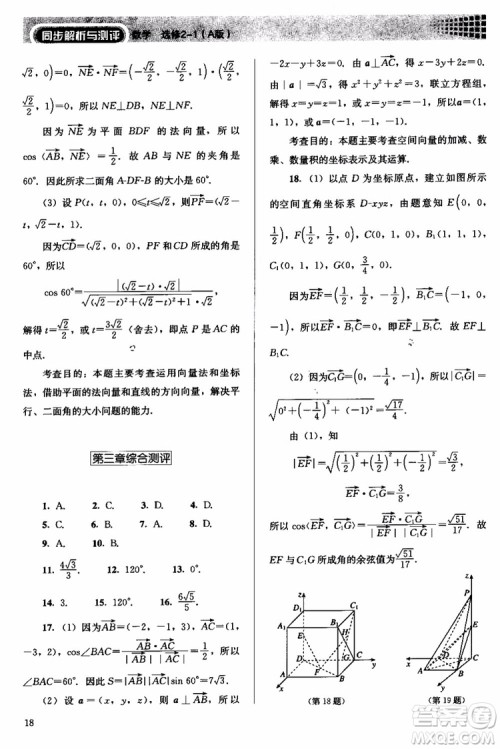 同步解析与测评 数学 选修2-1(A版)
(√2/2, √2/2, 0), 所以 NE⊥AB, NE⊥BF.
因为 NE 为平面 BDF 的法向量, 所以
cos⟨AB, NE⟩=1/2. 故 AB 与 NE 的夹角是
60°. 因此所求二面角 A-DF-B 的大小是 60°.
(3) 设 P(t, t, 0)(0≤t≤√2), 则 PF=(√2-t, √2-t, 1).
因为 CD=(√2, 0, 0), PF 和 CD 所成的角是
60°, 所以
cos 60°=|(√2-t)·√2|/(√((√2-t)²+(√2-t)²+1)·√2),
解得 t=√2/2 或 t=3√2/2 (舍去), 即点 P 是 AC 的
中点.
考查目的: 本题主要考查运用向量法和坐标
法, 借助平面的法向量和直线的方向向量, 解决平
行、二面角的大小问题的能力.
第三章综合测评
1. A. 2. C. 3. D. 4. D.
5. C. 6. A. 7. B. 8. C.
9. A. 10. B.
11. 4√3/3. 12. 6√5/5.
14. 3. 15. 120°. 16. 120°.
17. (1) 因为 AB=(-2, -1, 3), AC=(1,
-3, 2), 所以 cos∠BAC=AB·AC/(|AB||AC|)=1/2, 所以
∠BAC=60°. 所以 S=|AB||AC|sin 60°=7√3.
(2) 设 a=(x, y, z), 则 a⊥AB⇒-2x-y+
18
-x-2x+3z=0. 由 a⊥AC, 得 x-3y+2z=0. 由
|a|=√3, 得 x²+y²+z²=3. 所以 x=y=z=1 或
x=y=z=-1. 所以 a=(1, 1, 1) 或 a=(-1,
-1, -1).
考查目的: 本题主要考查空间向量的加减、数
乘、数量积的坐标表示及其运算.
18. (1) 以点 D 为坐标原点, 建立如图所示
的空间直角坐标系 D-xyz, 由题意可知, E(0, 0,
1/2), F(1/2, 1/2, 0), C(0, 1, 0), C₁(0, 1,
1), B₁(1, 1, 1), G(0, 3/4, 0).
因为 EF=(1/2, 1/2, -1/2), B₁C=(-1, 0,
-1), 所以 EF·B₁C=0, 所以 EF⊥B₁C. 故 EF
⊥B₁C.
(2) 因为 C₁G=(0, -1/4, -1), 所以 |C₁G|=
√(0²+(-1/4)²+(-1)²)=√17/4.
由(1), 可知
|EF|=√((1/2)²+(1/2)²+(-1/2)²)=√3/2,
且 EF·C₁G=3/8,
所以 cos⟨EF, C₁G⟩=EF·C₁G/(|EF||C₁G|)=√51/17.
故 EF 与 C₁G 所成角的余弦值为 √51/17.
(第 18 题)
(第 19 题)